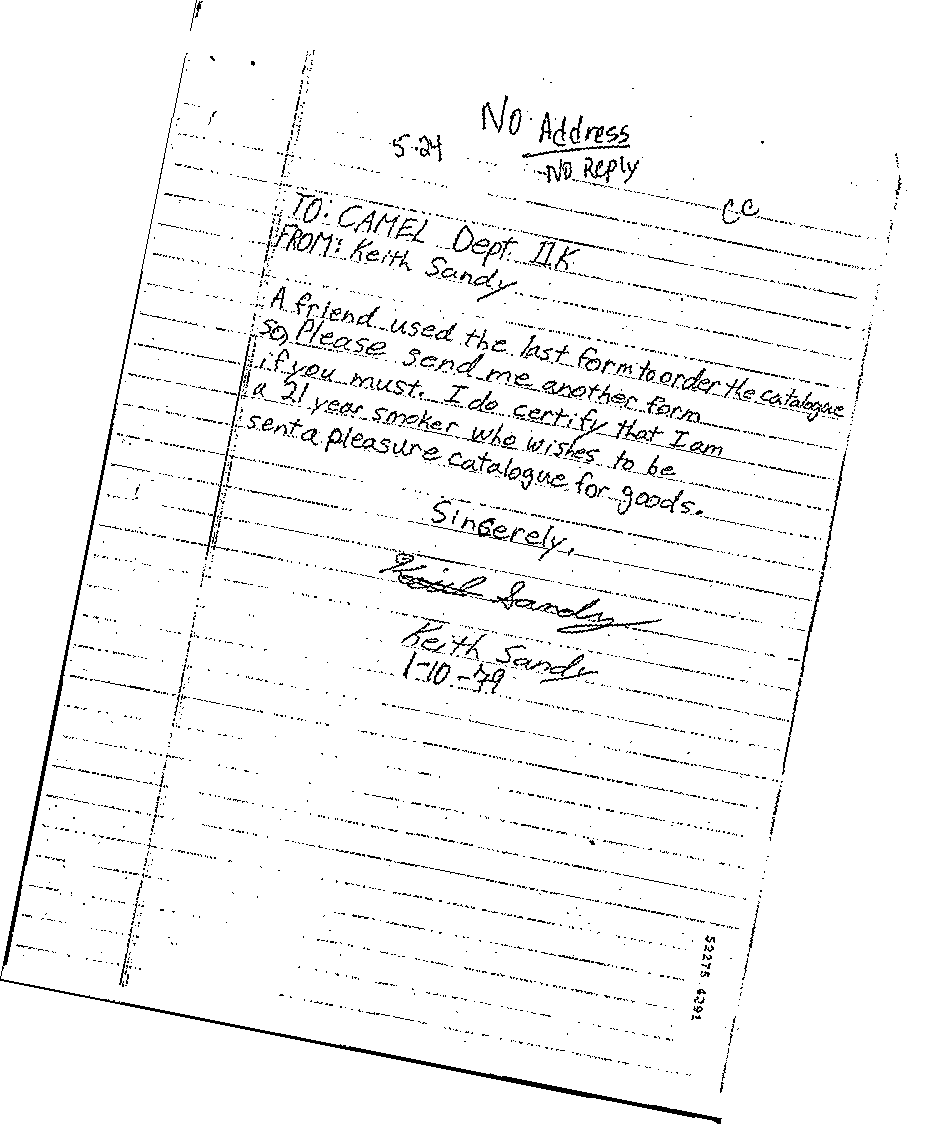 No Address
5-24
No Reply
CC
TO: CAMEL Dept. IIK
FROM: Keith Sandy
A friend used the last form to order the catalogue
so, Please send me another form
if you must. I do certify that I am
a 21 year smoker who wishes to be
sent a pleasure catalogue for goods.
Sincerely,
Keith Sandy
Keith Sandy
1-10-79
52275 4291